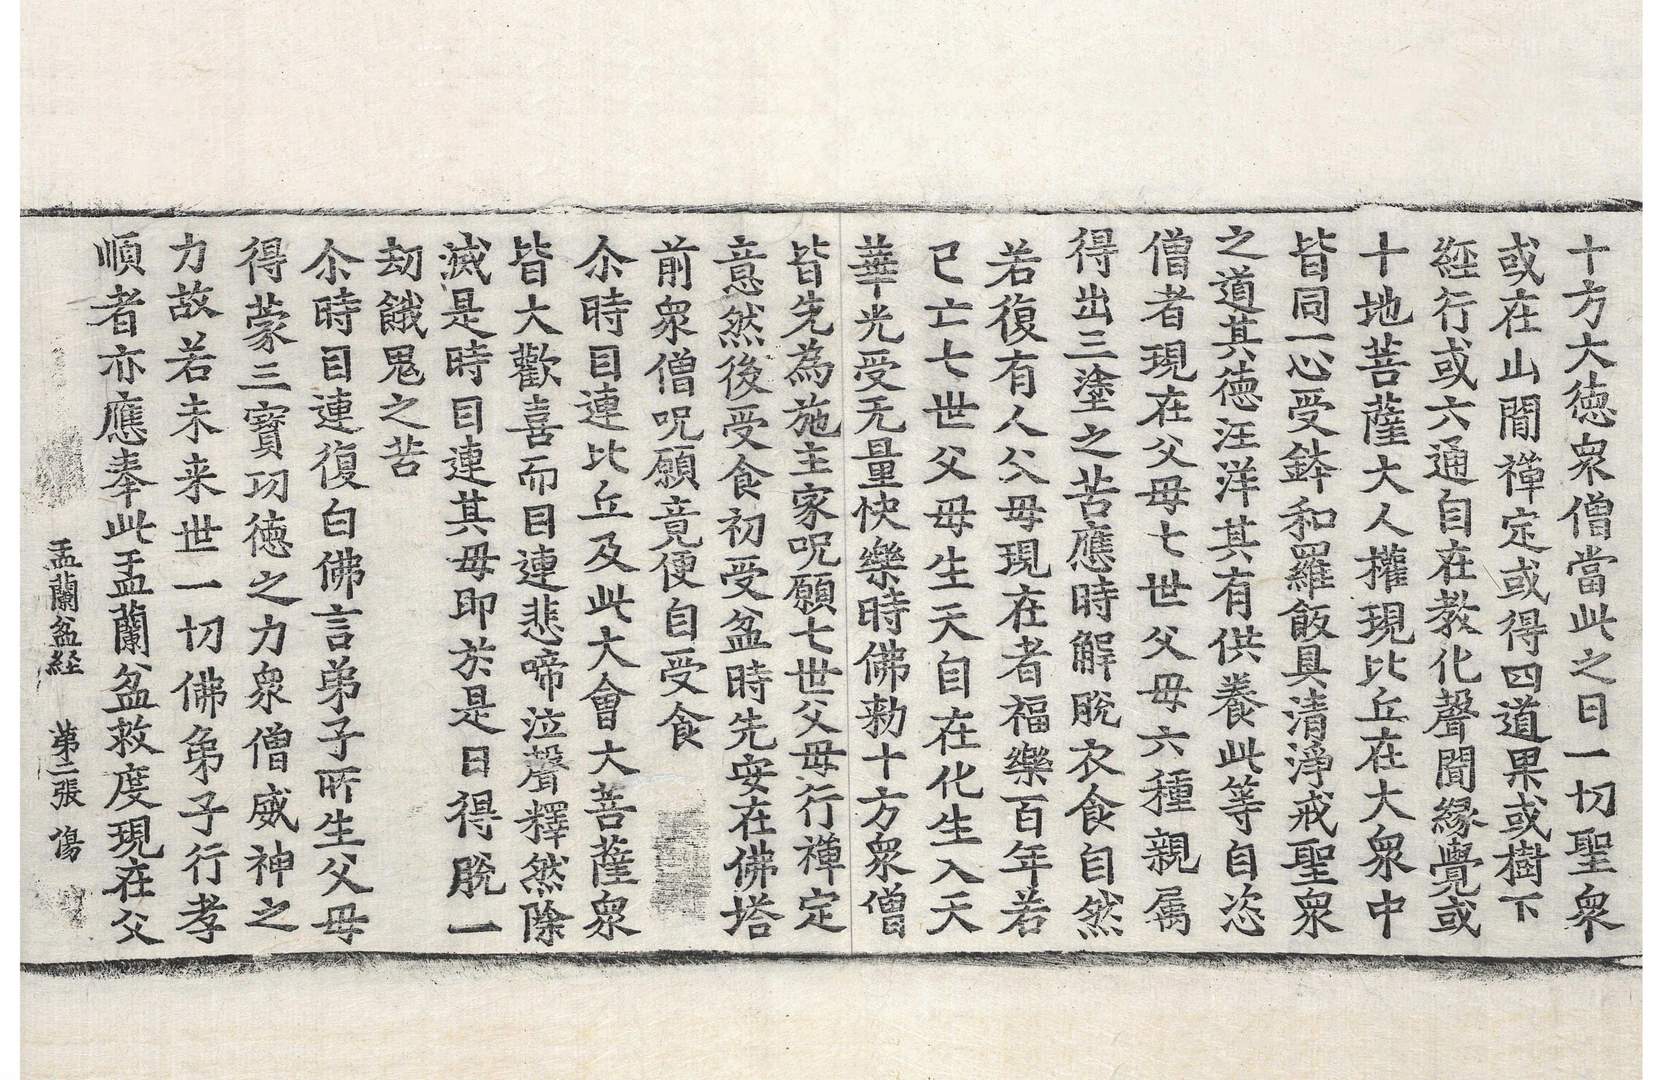 十方大徳衆僧當此之日一切聖衆
或在山間禪定或得四道果或樹下
經行或六通自在教化聲聞縁覺或
十地菩薩大人權現比丘在大衆中
皆同一心受鉢和羅飯具清淨戒聖衆
之道其德汪洋其有供養此等自恣
僧者現在父母七世父母六種親属
得出三塗之苦應時解脫衣食自然
若復有人父母現在者福樂百年若
已亡七世父母生天自在化生入天
華光受无量快樂時佛勑十方衆僧
皆先為施主家呪願七世父母行禪定
意然後受食初受盆時先安在佛塔
前衆僧呪願竟便自受食
尒時目連比丘及此大會大菩薩衆
皆大歡喜而目連悲啼泣聲釋然除
滅是時目連其母即於是日得脫一
劫餓鬼之苦
尒時目連復白佛言弟子所生父母
得蒙三寶功徳之力衆僧威神之
力故若未来世一切佛弟子行孝
順者亦應奉此盂蘭盆救度現在父
盂蘭盆経 第二張 傷